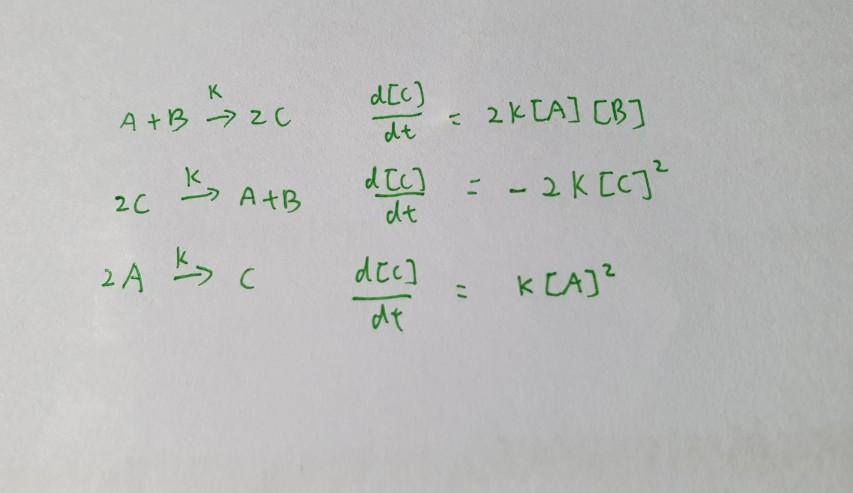 A + B →^K 2C    d[C]/dt = 2K[A][B]
2C →^K A+B    d[C]/dt = - 2K[C]²
2A →^K C    d[C]/dt = K[A]²